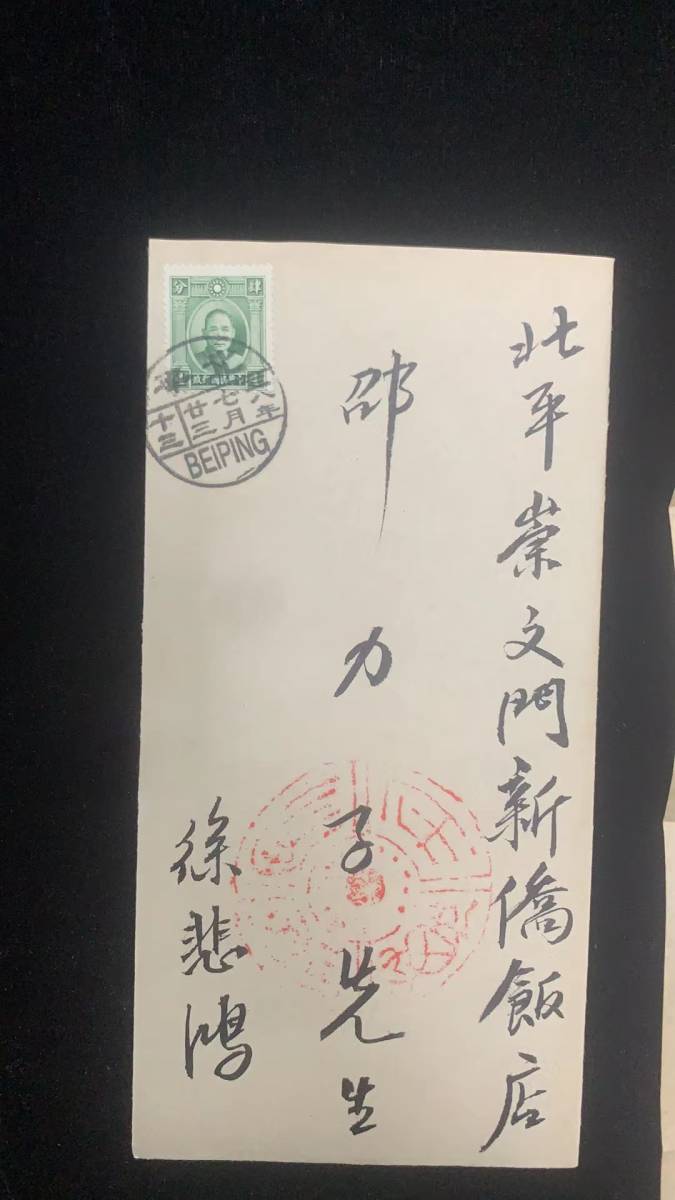 北平崇文門新僑飯店
邵力子先生
徐悲鴻
分 肆
八年
七月
廿三
十三
BEIPING